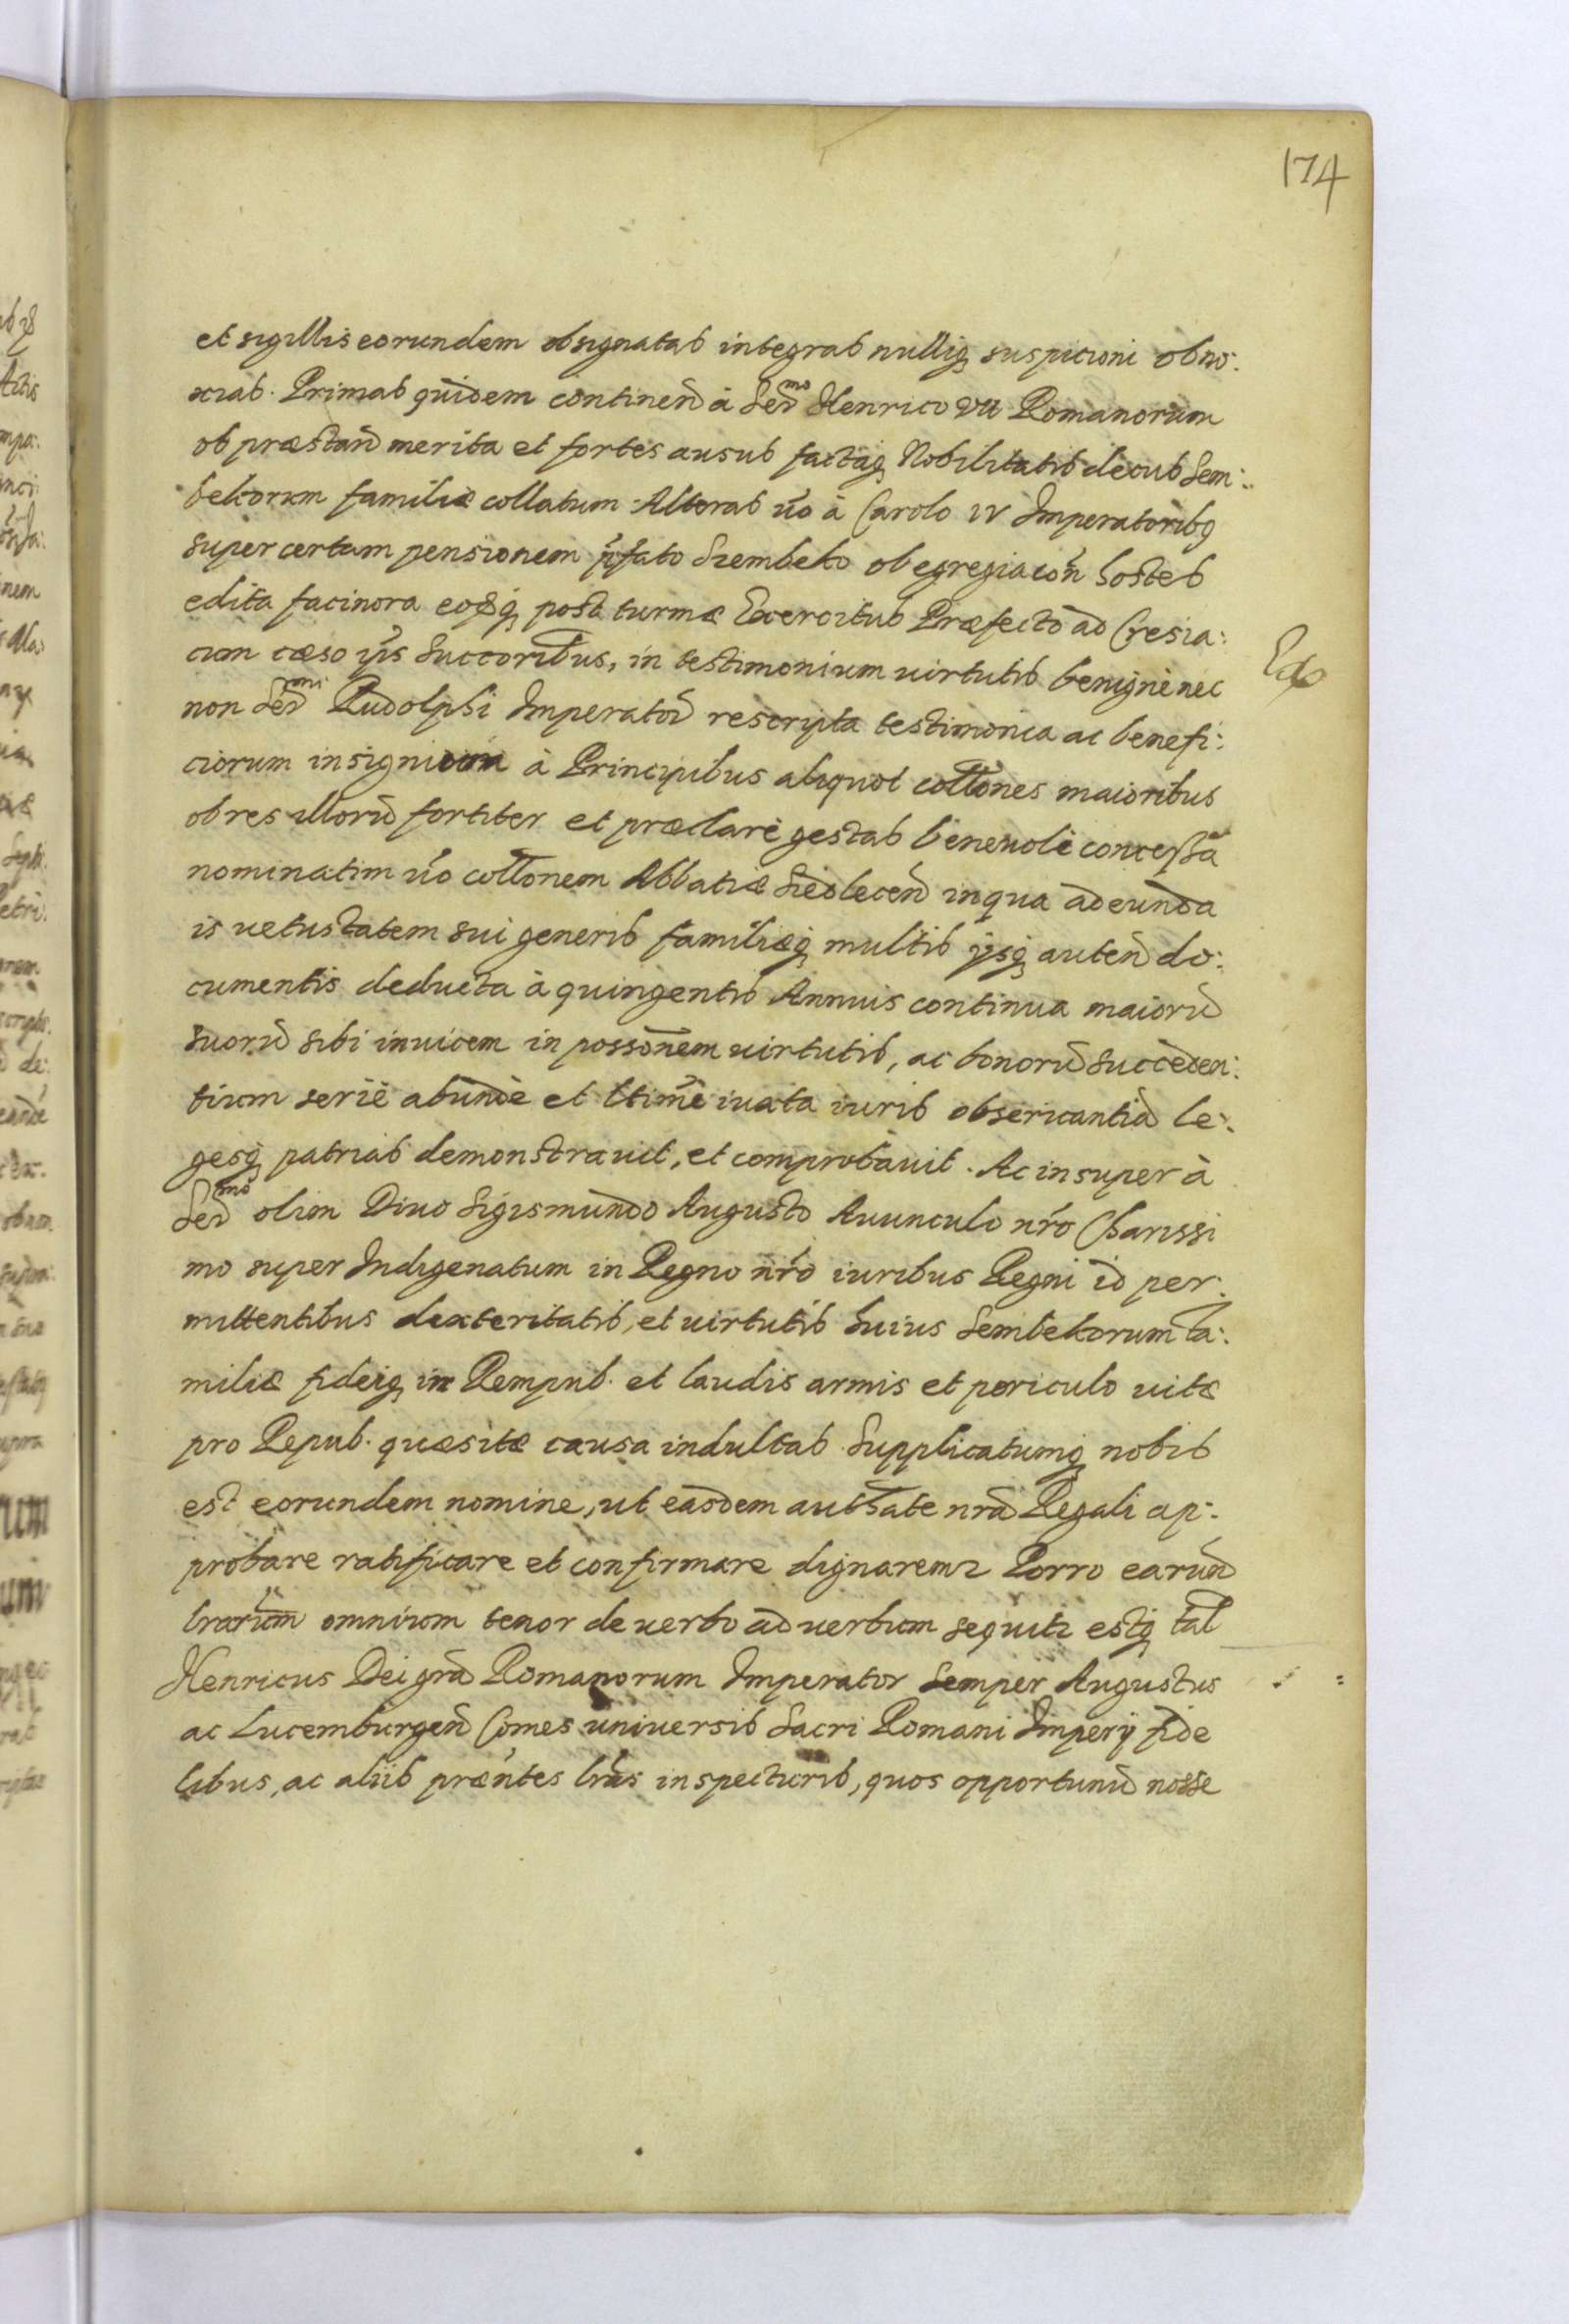 174
et sigillis eorundem obsignatas integras nulliq₃ suspicioni obno:
xias. Primas quidem continen̄ à Ser̄ᵐᵒ Henrico VII Romanorum
ob præstan̄ merita et fortes ausus factaq₃ Nobilitatis decus Sem:
bekorum familiæ collatum. Alteras v̄o à Carolo IV Imperatoribq
super certam pensionem p̄fato Szembeko ob egregia con̄ hostes
edita facinora eosq₃ post turmæ Exercitus Præfecto ad Cresia:
cum cæso ijs Succoribus, in testimonium uirtutis benignè nec
non Ser̄ᵐⁱ Rudolphi Imperator̄ rescripta testimonia ac benefi:
ciorum insignium à Principibus aliquot coll̄ones maioribus
ob res illorū fortiter et præclarè gestas beneuolè concessa
nominatim v̄o coll̄onem Abbatiæ Siedlecen̄ in qua adeunda
is uetustatem sui generis familiæq₃ multis ijsq₃ auten̄ do:
cumentis deducta à quingentis Annuis continua maiorū
suorū sibi inuicem in posson̄em uirtutis, ac bonorū succeden:
tium serie abunde et ltime iuxta iuris obseruantiā le:
gesq₃ patrias demonstrauit, et comprobauit. Ac insuper à
Ser̄ᵐᵒ olim Diuo Sigismundo Augusto Auunculo nr̄o Charissi
mo super Indigenatum in Regno nr̄o iuribus Regni id per:
mittentibus dexteritatis, et uirtutis huius Sembekorum fa:
miliæ fideiq₃ in Rempub. et laudis armis et periculo uitæ
pro Repub. quæsitæ causa indultas. Supplicatumq₃ nobis
est eorundem nomine, ut easdem auth̄ate nr̄a Regali ap:
probare ratificare et confirmare dignaremr Porro earun̄
lrarum omnium tenor de uerbo ad uerbum sequitr estq₃ tal̄
Henricus Dei gr̄a Romanorum Imperator Semper Augustus
ac Lucemburgen̄ Comes uniuersis Sacri Romani Imperij fide
libus, ac aliis præn̄tes lr̄as inspecturis, quos opportunū nosse